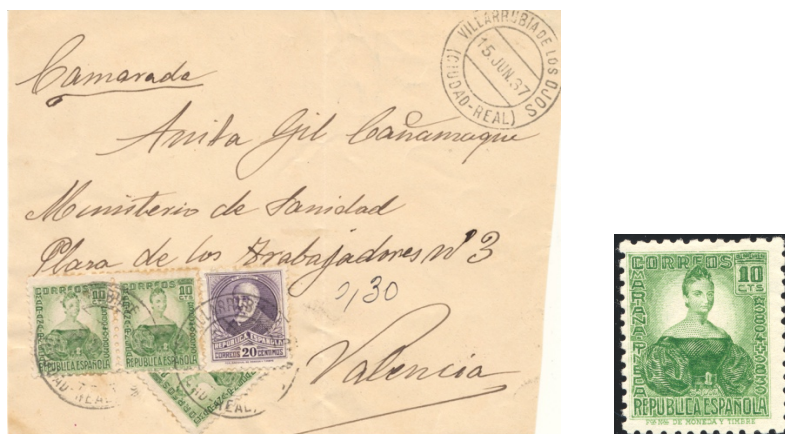 VILLARRUBIA DE LOS OJOS
15 JUN. 37
(CIUDAD-REAL)
Camarada
Anita Gil Cañamaque
Ministerio de Sanidad
Plaza de los Trabajadores nº 3
0,30
Valencia
CORREOS
10
CTS
REPUBLICA ESPAÑOLA
CORREOS
10
CTS
REPUBLICA ESPAÑOLA
REPUBLICA ESPAÑOLA
CORREOS 20 CENTIMOS
CORREOS
10
CTS
MARIANA PINEDA
REPUBLICA ESPAÑOLA